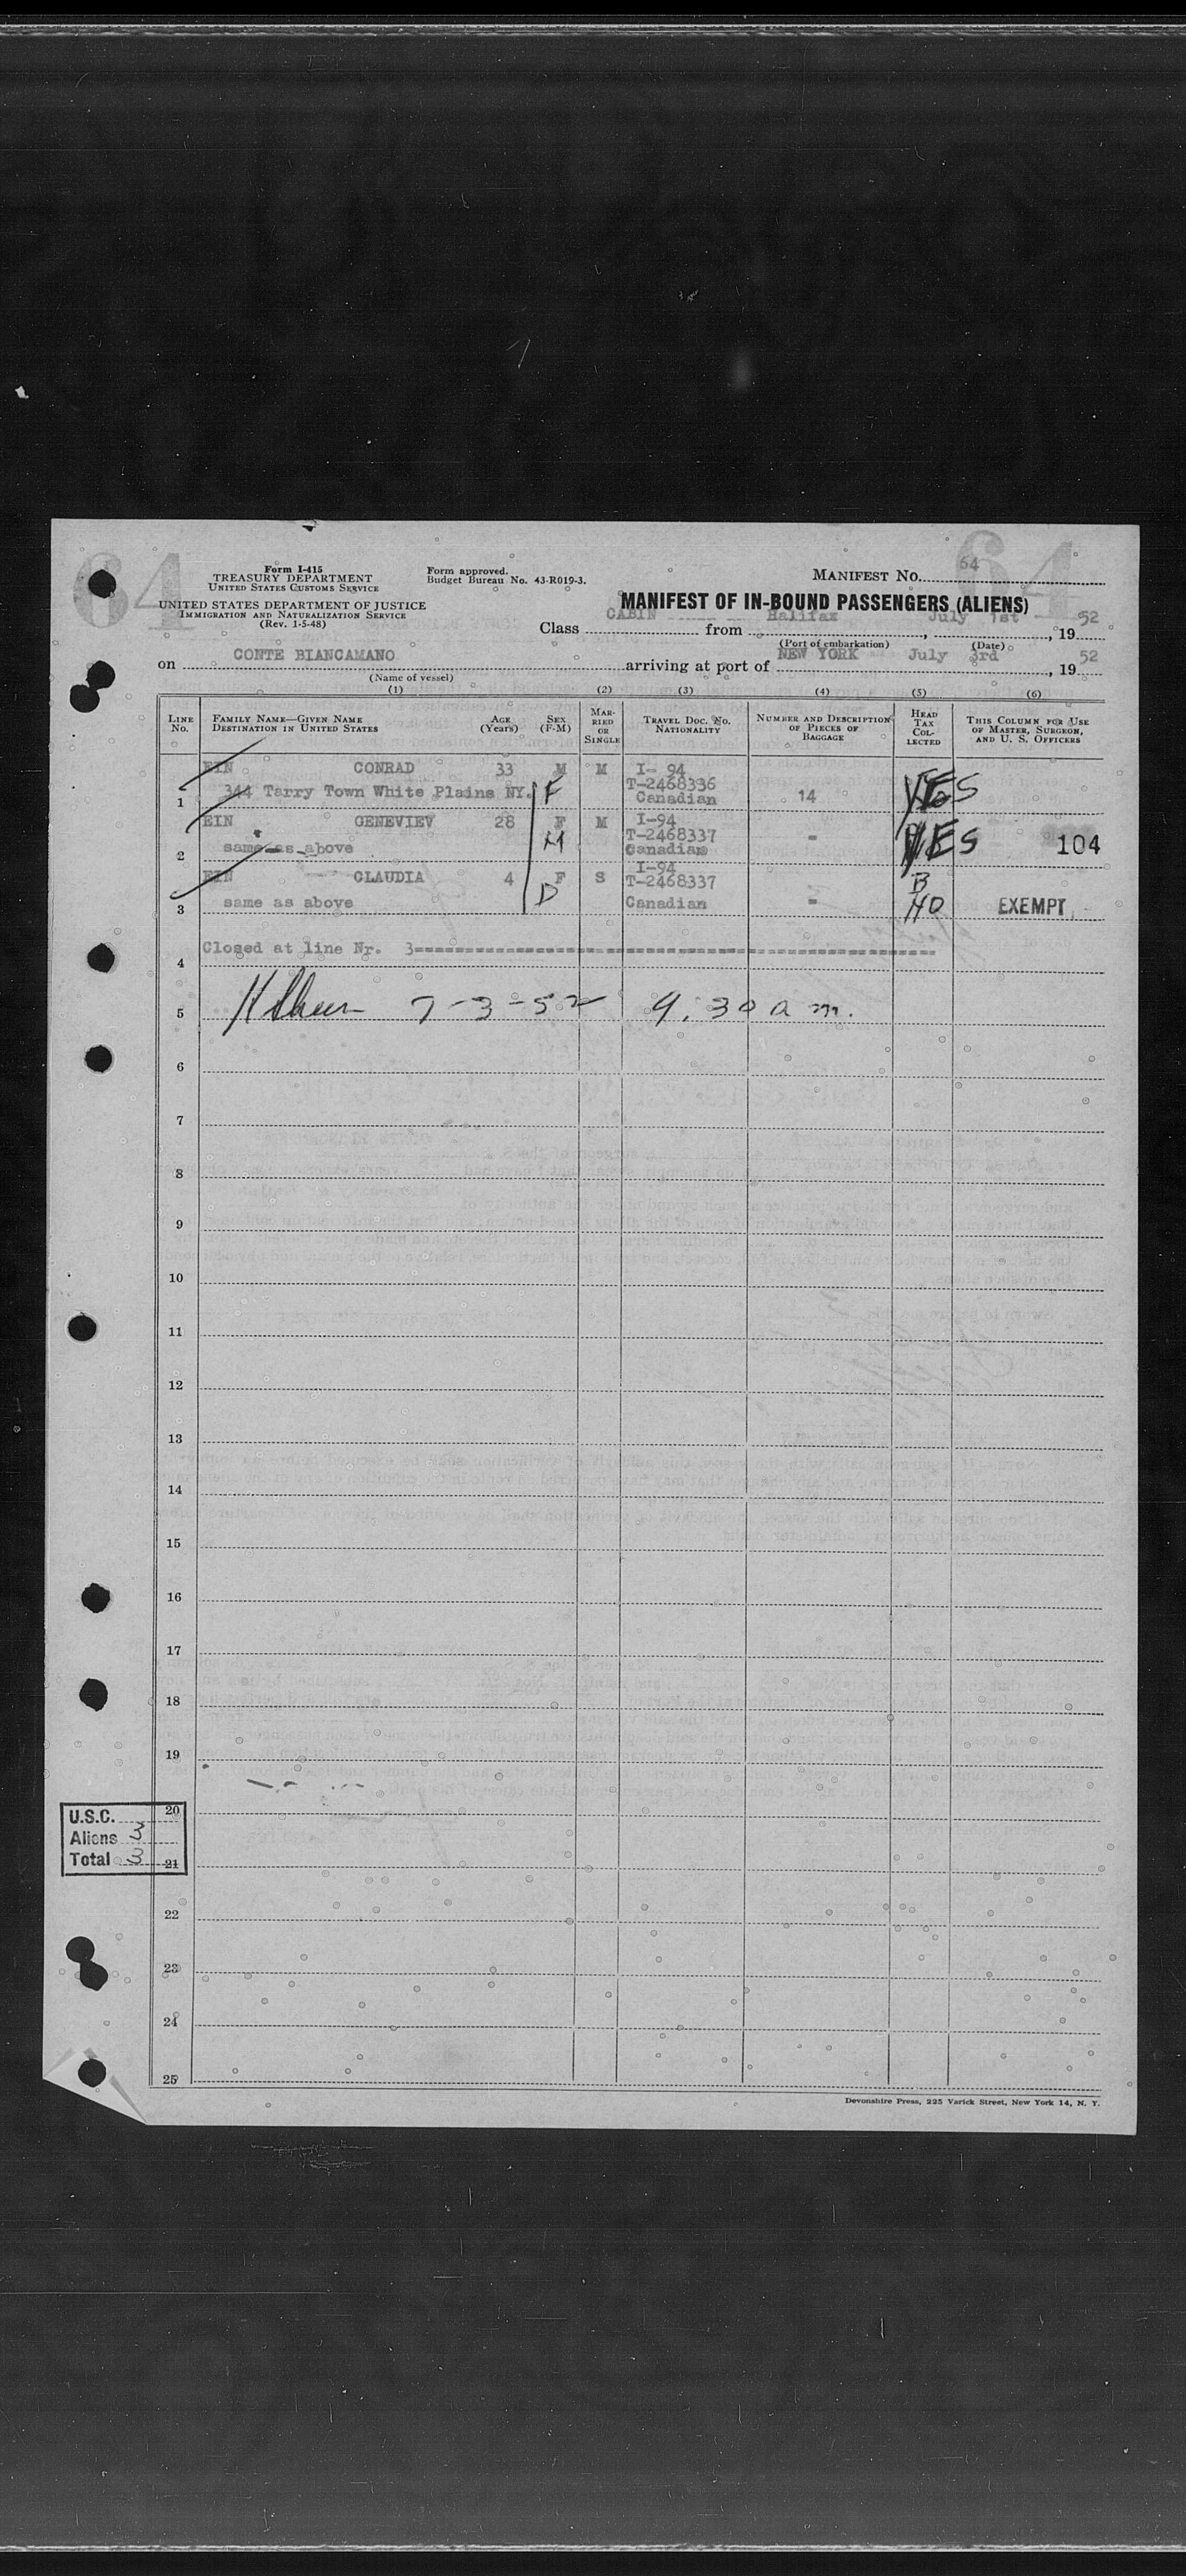 64
64
Form I-415
TREASURY DEPARTMENT
UNITED STATES CUSTOMS SERVICE
UNITED STATES DEPARTMENT OF JUSTICE
IMMIGRATION AND NATURALIZATION SERVICE
(Rev. 1-5-48)
Form approved.
Budget Bureau No. 43-R019-3.
MANIFEST No. 64
MANIFEST OF IN-BOUND PASSENGERS (ALIENS)
Class CABIN from Halifax, July 1st, 19 52
(Port of embarkation) (Date)
on CONTE BIANCAMANO arriving at port of NEW YORK July 3rd, 19 52
(Name of vessel)
(1) (2) (3) (4) (5) (6)
LINE No. FAMILY NAME—GIVEN NAME DESTINATION IN UNITED STATES AGE (Years) SEX (F-M) MARRIED OR SINGLE TRAVEL DOC. No. NATIONALITY NUMBER AND DESCRIPTION OF PIECES OF BAGGAGE HEAD TAX COLLECTED THIS COLUMN FOR USE OF MASTER, SURGEON, AND U. S. OFFICERS
EIN CONRAD 33 M M I- 94
T-2468336
1 344 Tarry Town White Plains NY. F Canadian 14 YES
EIN GENEVIEV 28 F M I-94
T-2468337
2 same as above M Canadian - YES 104
EIN CLAUDIA 4 F S I-94
T-2468337 B
3 same as above D Canadian - HD EXEMPT
4 Closed at line Nr. 3
5 7-3-52 9:30 am.
6
7
8
9
10
11
12
13
14
15
16
17
18
19
20
21
22
23
24
25
U.S.C.
Aliens 3
Total 3
Devonshire Press, 225 Varick Street, New York 14, N. Y.